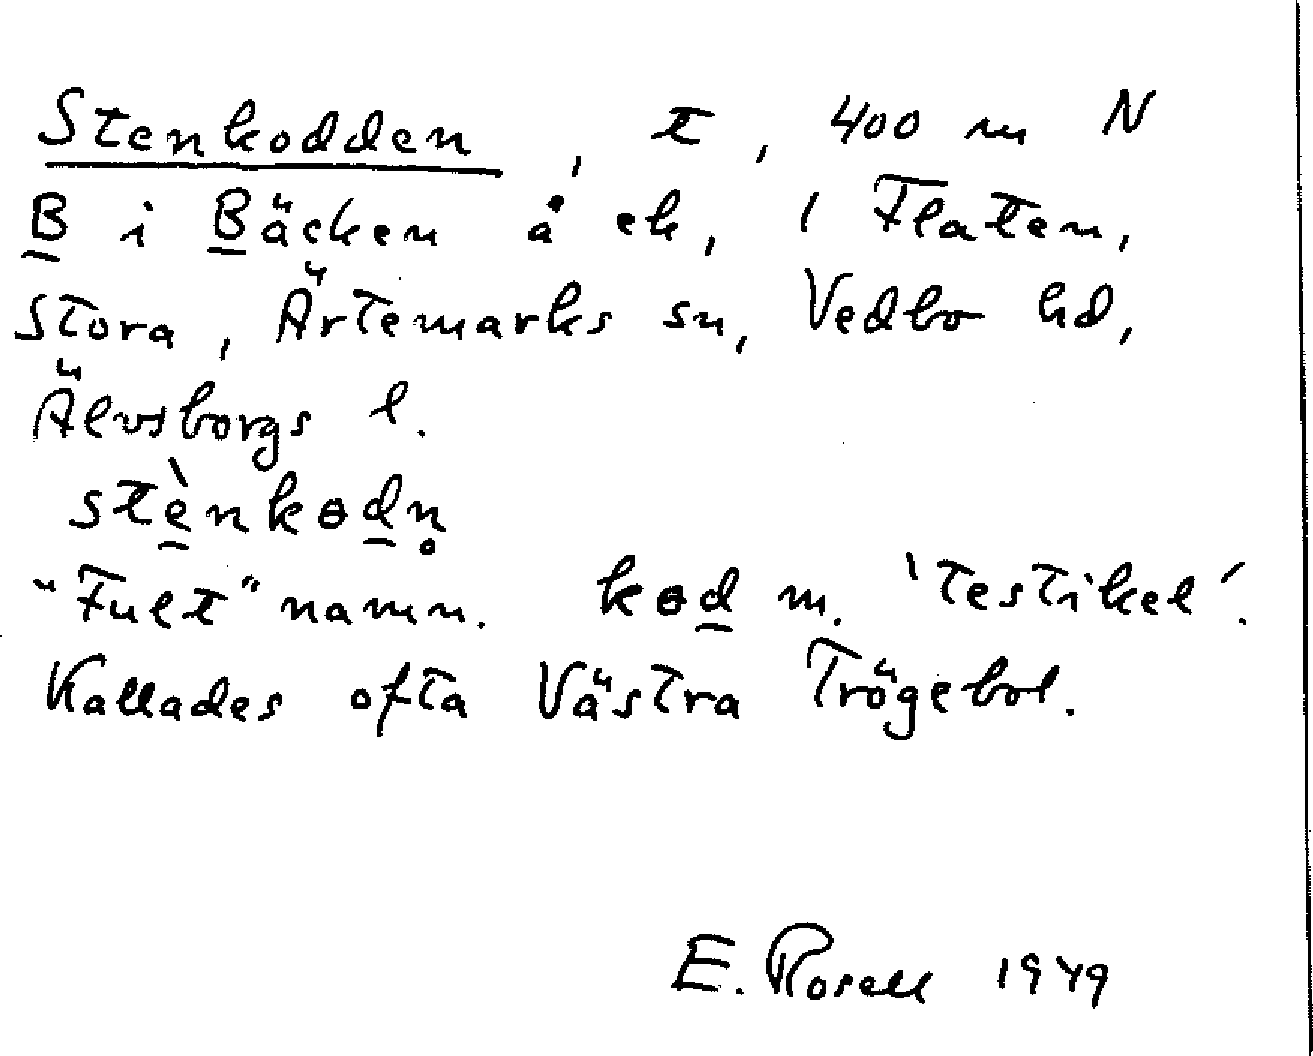 Stenkodden, t, 400 m N
B i Bäcken å ek, i Flaten,
Stora, Ärtemarks sn, Vedbo hd,
Älvsborgs l.
stènkɵdn̥
"Fult" namn. kɵd m. 'testikel'.
Kallades ofta Västra Trögebol.
E. Rosell 1949